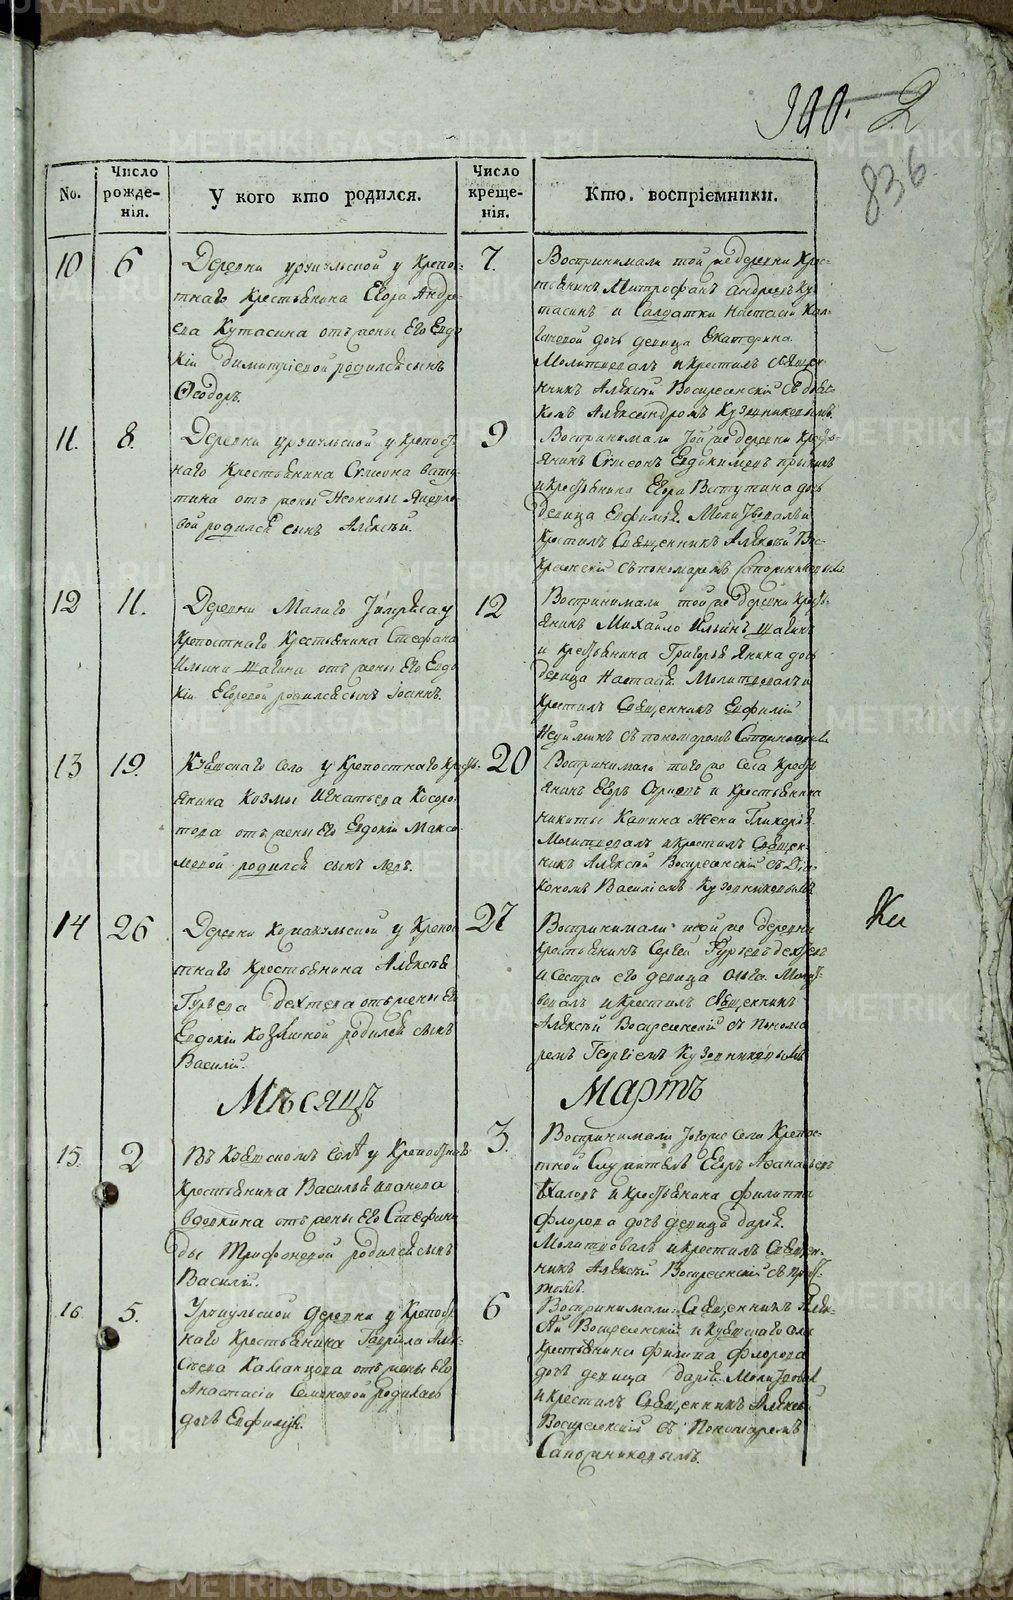 METRIKI.GASO-URAL.RU
2
836
No.
Число рожде-нія.
У кого кто родился.
Число креще-нія.
Кто. воспріемники.
10
6
Деревни у Крепос-
тнаго Крестьянина Егора Андре-
ева Кутасина отъ жены Его Евдо
кіи Димитріевой родился сынъ
Ѳеодоръ.
7.
Воспринимали той же деревни Крес-
тьянинъ Митрофанъ Андреевъ Ку
тасинъ и Солдатки Настасіи
дочь девица Екатерина.
Молитвовалъ и крестилъ Священ
никъ Алексѣй Воскресенскій съ дьяч-
комъ Александромъ Кузовниковымъ.
11.
8.
Деревни у крепост
наго Крестьянина Симеона Вату
тина отъ жены Неонилы
вой родился сынъ Алексѣй.
9
Воспринимали той же деревни Кресть-
янинъ Симеонъ Евдокимовъ
и крестьянина Егора Ватутина дочь
девица Евфимія. Молитвовалъ и
Крестилъ Священникъ Алексѣй Вос-
кресенскій съ пономаремъ Сапожниковымъ
12
11.
Деревни Малаго у
Крепостнаго Крестьянина Стефана
Ильина Шагина отъ жены Его Евдо
кіи Егоровой родился сынъ Іоаннъ.
12
Воспринимали той же деревни Кресть-
янинъ Михайло Ильинъ Шагинъ
и крестьянина Григорья дочь
девица Настасія. Молитвовалъ и
Крестилъ Священникъ Евфимій
съ пономаремъ Сапожниковымъ
13
19.
Куяшскаго Села у Крепостнаго Кресть-
янина Козмы Игнатьева Косоро-
това отъ жены Его Евдокіи Макси-
мовой родился сынъ Левъ.
20
Воспринимали того же Села Кресть
янинъ Егоръ и крестьянина
Никиты Калина жена Гликерія.
Молитвовалъ и крестилъ Священ-
никъ Алексѣй Воскресенскій съ Діа-
кономъ Василіемъ Кузовниковымъ
14
26
Деревни у Крепос
тнаго Крестьянина Алексѣя
Гурьева Дехтева отъ жены Его
Евдокіи Козминой родился сынъ
Василій.
27
Воспринимали той же деревни
крестьянинъ Сергей Гурьевъ Дехтевъ
и Сестра его девица Ольга. Молит-
вовалъ и крестилъ Священникъ
Алексѣй Воскресенскій съ Понома
ремъ Георгіемъ Кузовниковымъ
Мѣсяцъ
Мартъ
15.
2
Въ Куяшскомъ Селѣ у Крепостнаго
Крестьянина Василья Иванова
Вдовкина отъ жены Его Стефани
ды Трифоновой родился сынъ
Василій.
3.
Воспринимали того же Села Крепос-
тной Служитель Егоръ Афанасьевъ
и крестьянина Филиппа
Флорова дочь девица Дарія.
Молитвовалъ и крестилъ Священ-
никъ Алексѣй Воскресенскій съ
16.
5.
деревни у Крепост
наго Крестьянина Гаврила Алек-
сѣева отъ жены Его
Анастасіи Семеновой родилась
дочь Евфимія.
6
Воспринимали: Священникъ Алек-
сѣй Воскресенскій и Куяшскаго Села
Крестьянина Филипа Флорова
дочь девица Дарія. Молитвовалъ
и крестилъ Священникъ Алексѣй
Воскресенскій съ Пономаремъ
Сапожниковымъ.